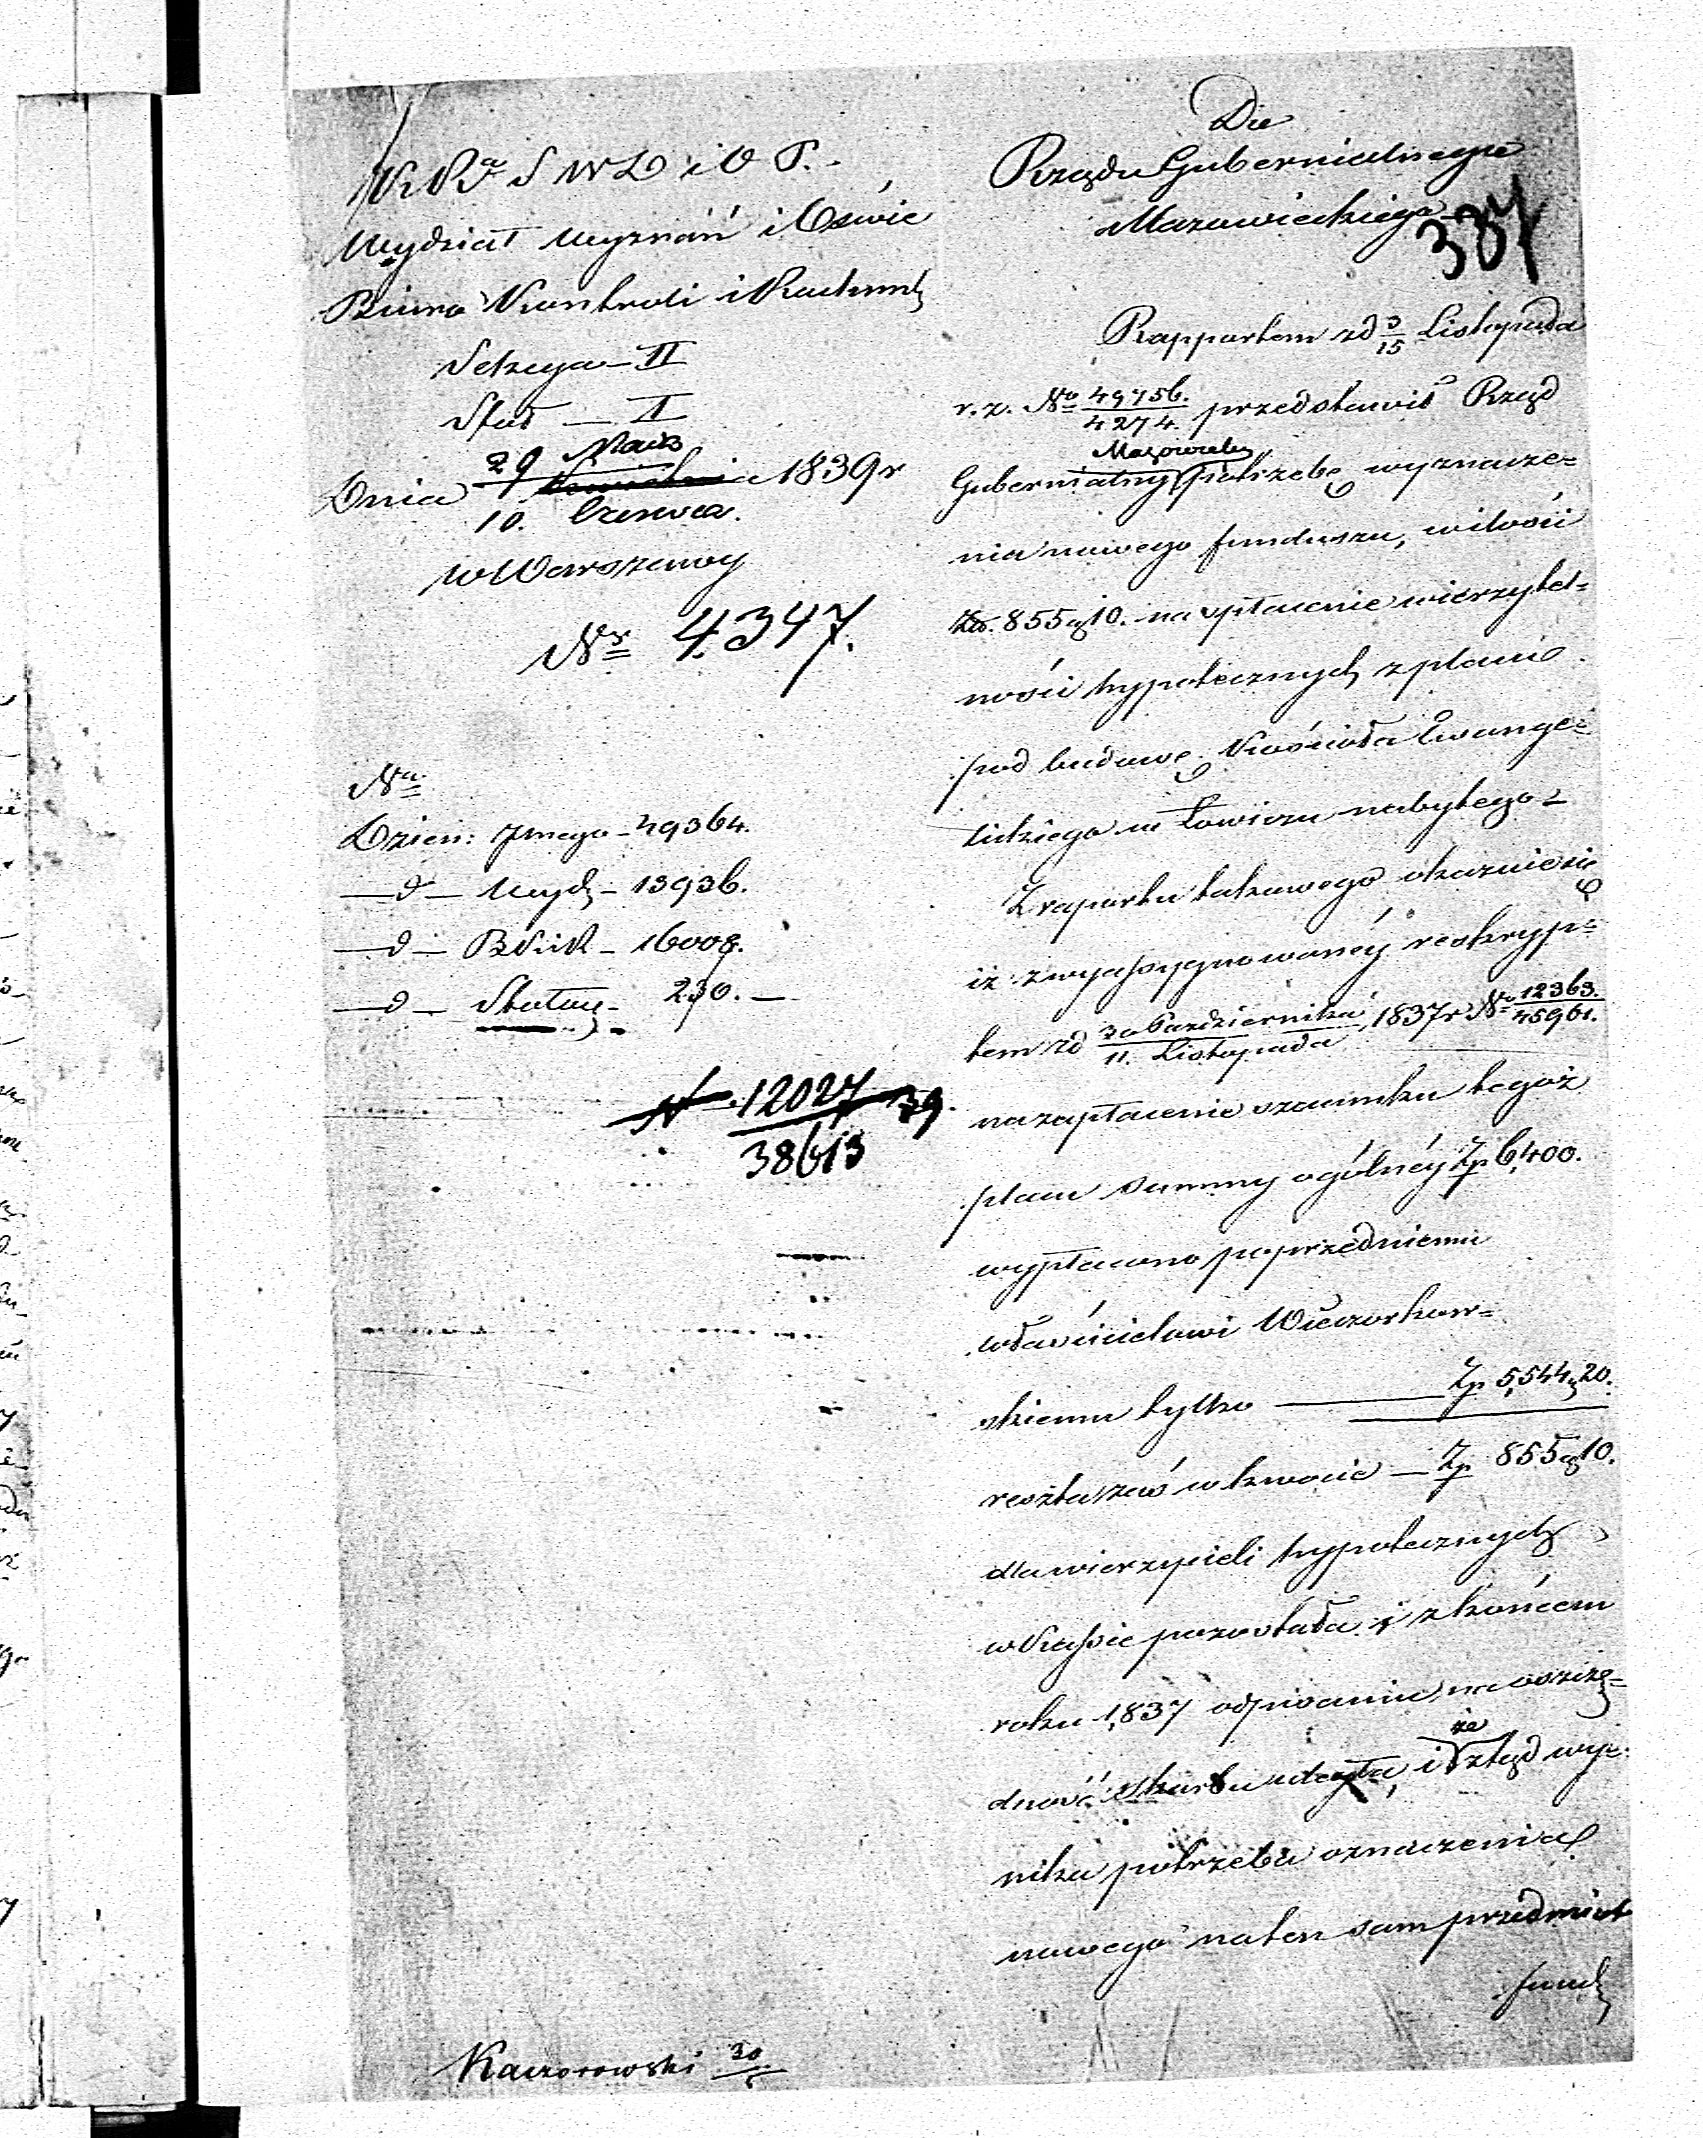 K R S W D i O P.
Wydział Wyznań i Oświe
Biuro Kontroli i Rachun
Sekcya – II
Stół – I
Dnia 29 Maia / 10. Czerwca 1839 r
w Warszawy
Nr 4347.
No
Dzien: Jnego – 49364.
— d — Wydz – 13936.
— d — BKiR – 16008.
— d — Stołowy – 230. —
N 12027 / 38613 39.
Kaczorowski 30
Do
Rządu Gubernialnego
Mazowieckiego
387
Rapportem z d 3/15 Listopada
r. z. No 49756. / 4274. przedstawił Rząd
Gubernialny Mazowiecki potrzebę wyznacze=
nia nowego funduszu, w ilości
Zło. 855 g 10. na spłacenie wierzytel=
ności hypotecznych z placu
pod budowę Kościoła Ewange=
lickiego w Łowiczu nabytego –
Z raportu takowego okazuie się
iż z wyassygnowanéy reskryp=
tem z d 30 Października / 11. Listopada 1837 r No 12363. / 45961.
na zapłacenie szacunku tegoż
placu summy ogólnéy Zp 6,400.
wypłacono poprzedniemu
właścicielowi Wieczorkow=
skiemu tylko — Zp 5,544 g 20.
reszta zaś w kwocie — Zp 855 g 10.
dla wierzycieli hypotecznych
w Kassie pozostała i z końcem
roku 1837 odpisaniu na oszczę=
dność Skarbu uległa, i że ztąd wy=
nika potrzeba oznaczenia
nowego na ten sam przedmiot
fund